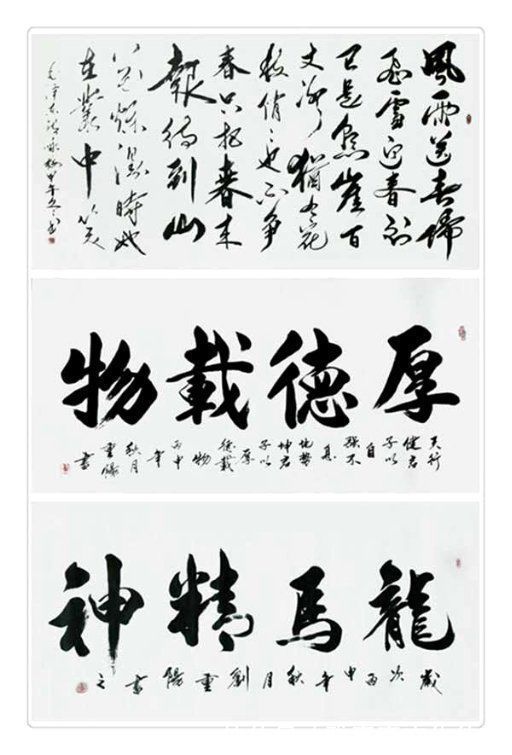 風雨送春歸
飛雪迎春到
已是懸崖百
丈冰猶有花
枝俏俏也不爭
春只把春來
報待到山
花爛漫時她
在叢中笑
毛澤東詠梅甲午
厚德載物
天行
健君
子以
自
强不
息
地勢
坤君
子以
厚
德載
物
丙申
年
秋月
重陽
書
龍馬精神
歲次丙申年秋月劉重陽書之